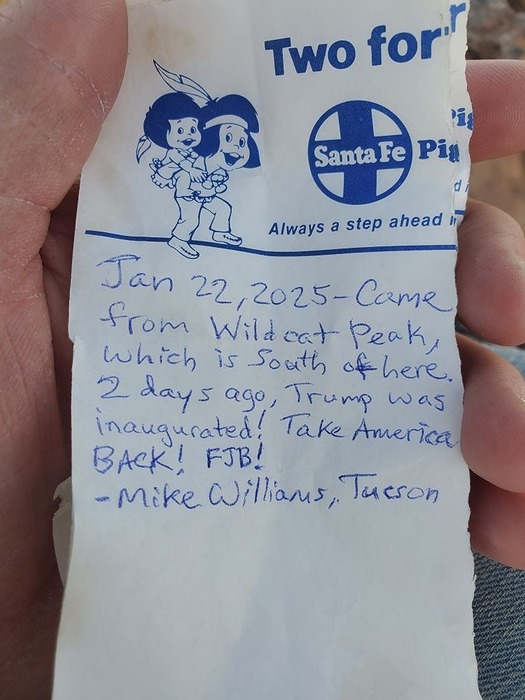 Two for
Santa Fe
Always a step ahead
Jan 22, 2025-Came
from Wildcat Peak,
which is South of here.
2 days ago, Trump was
inaugurated! Take America
BACK! FJB!
-Mike Williams, Tucson